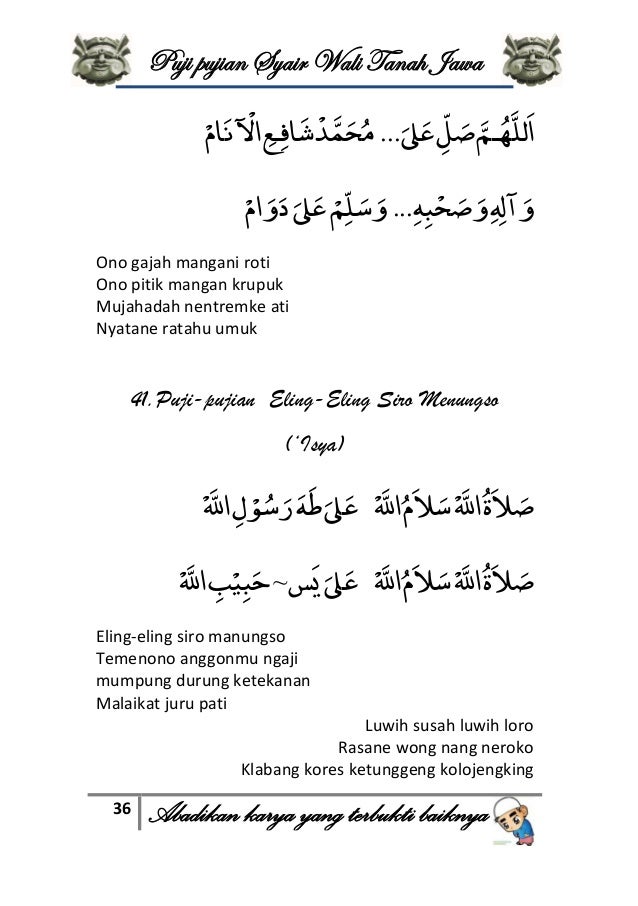 Puji pujian Syair Wali Tanah Jawa
اَللَّهُـمَّ صَلِّ عَلَىٰ ... مُحَمَّدْ شَافِعِ الْآنَامْ
وَ آلِهِ وَصَحْبِهِ ... وَ سَلِّمْ عَلَىٰ دَوَامْ
Ono gajah mangani roti
Ono pitik mangan krupuk
Mujahadah nentremke ati
Nyatane ratahu umuk
41. Puji-pujian Eling-Eling Siro Menungso
('Isya)
صَلَاةُ اللَّهْ سَلَامُ اللَّهْ عَلَىٰ طَهَ رَسُوْلِ اللَّهْ
صَلَاةُ اللَّهْ سَلَامُ اللَّهْ عَلَىٰ يَس~حَبِيْبِ اللَّهْ
Eling-eling siro manungso
Temenono anggonmu ngaji
mumpung durung ketekanan
Malaikat juru pati
Luwih susah luwih loro
Rasane wong nang neroko
Klabang kores ketunggeng kolojengking
36 Abadikan karya yang terbukti baiknya